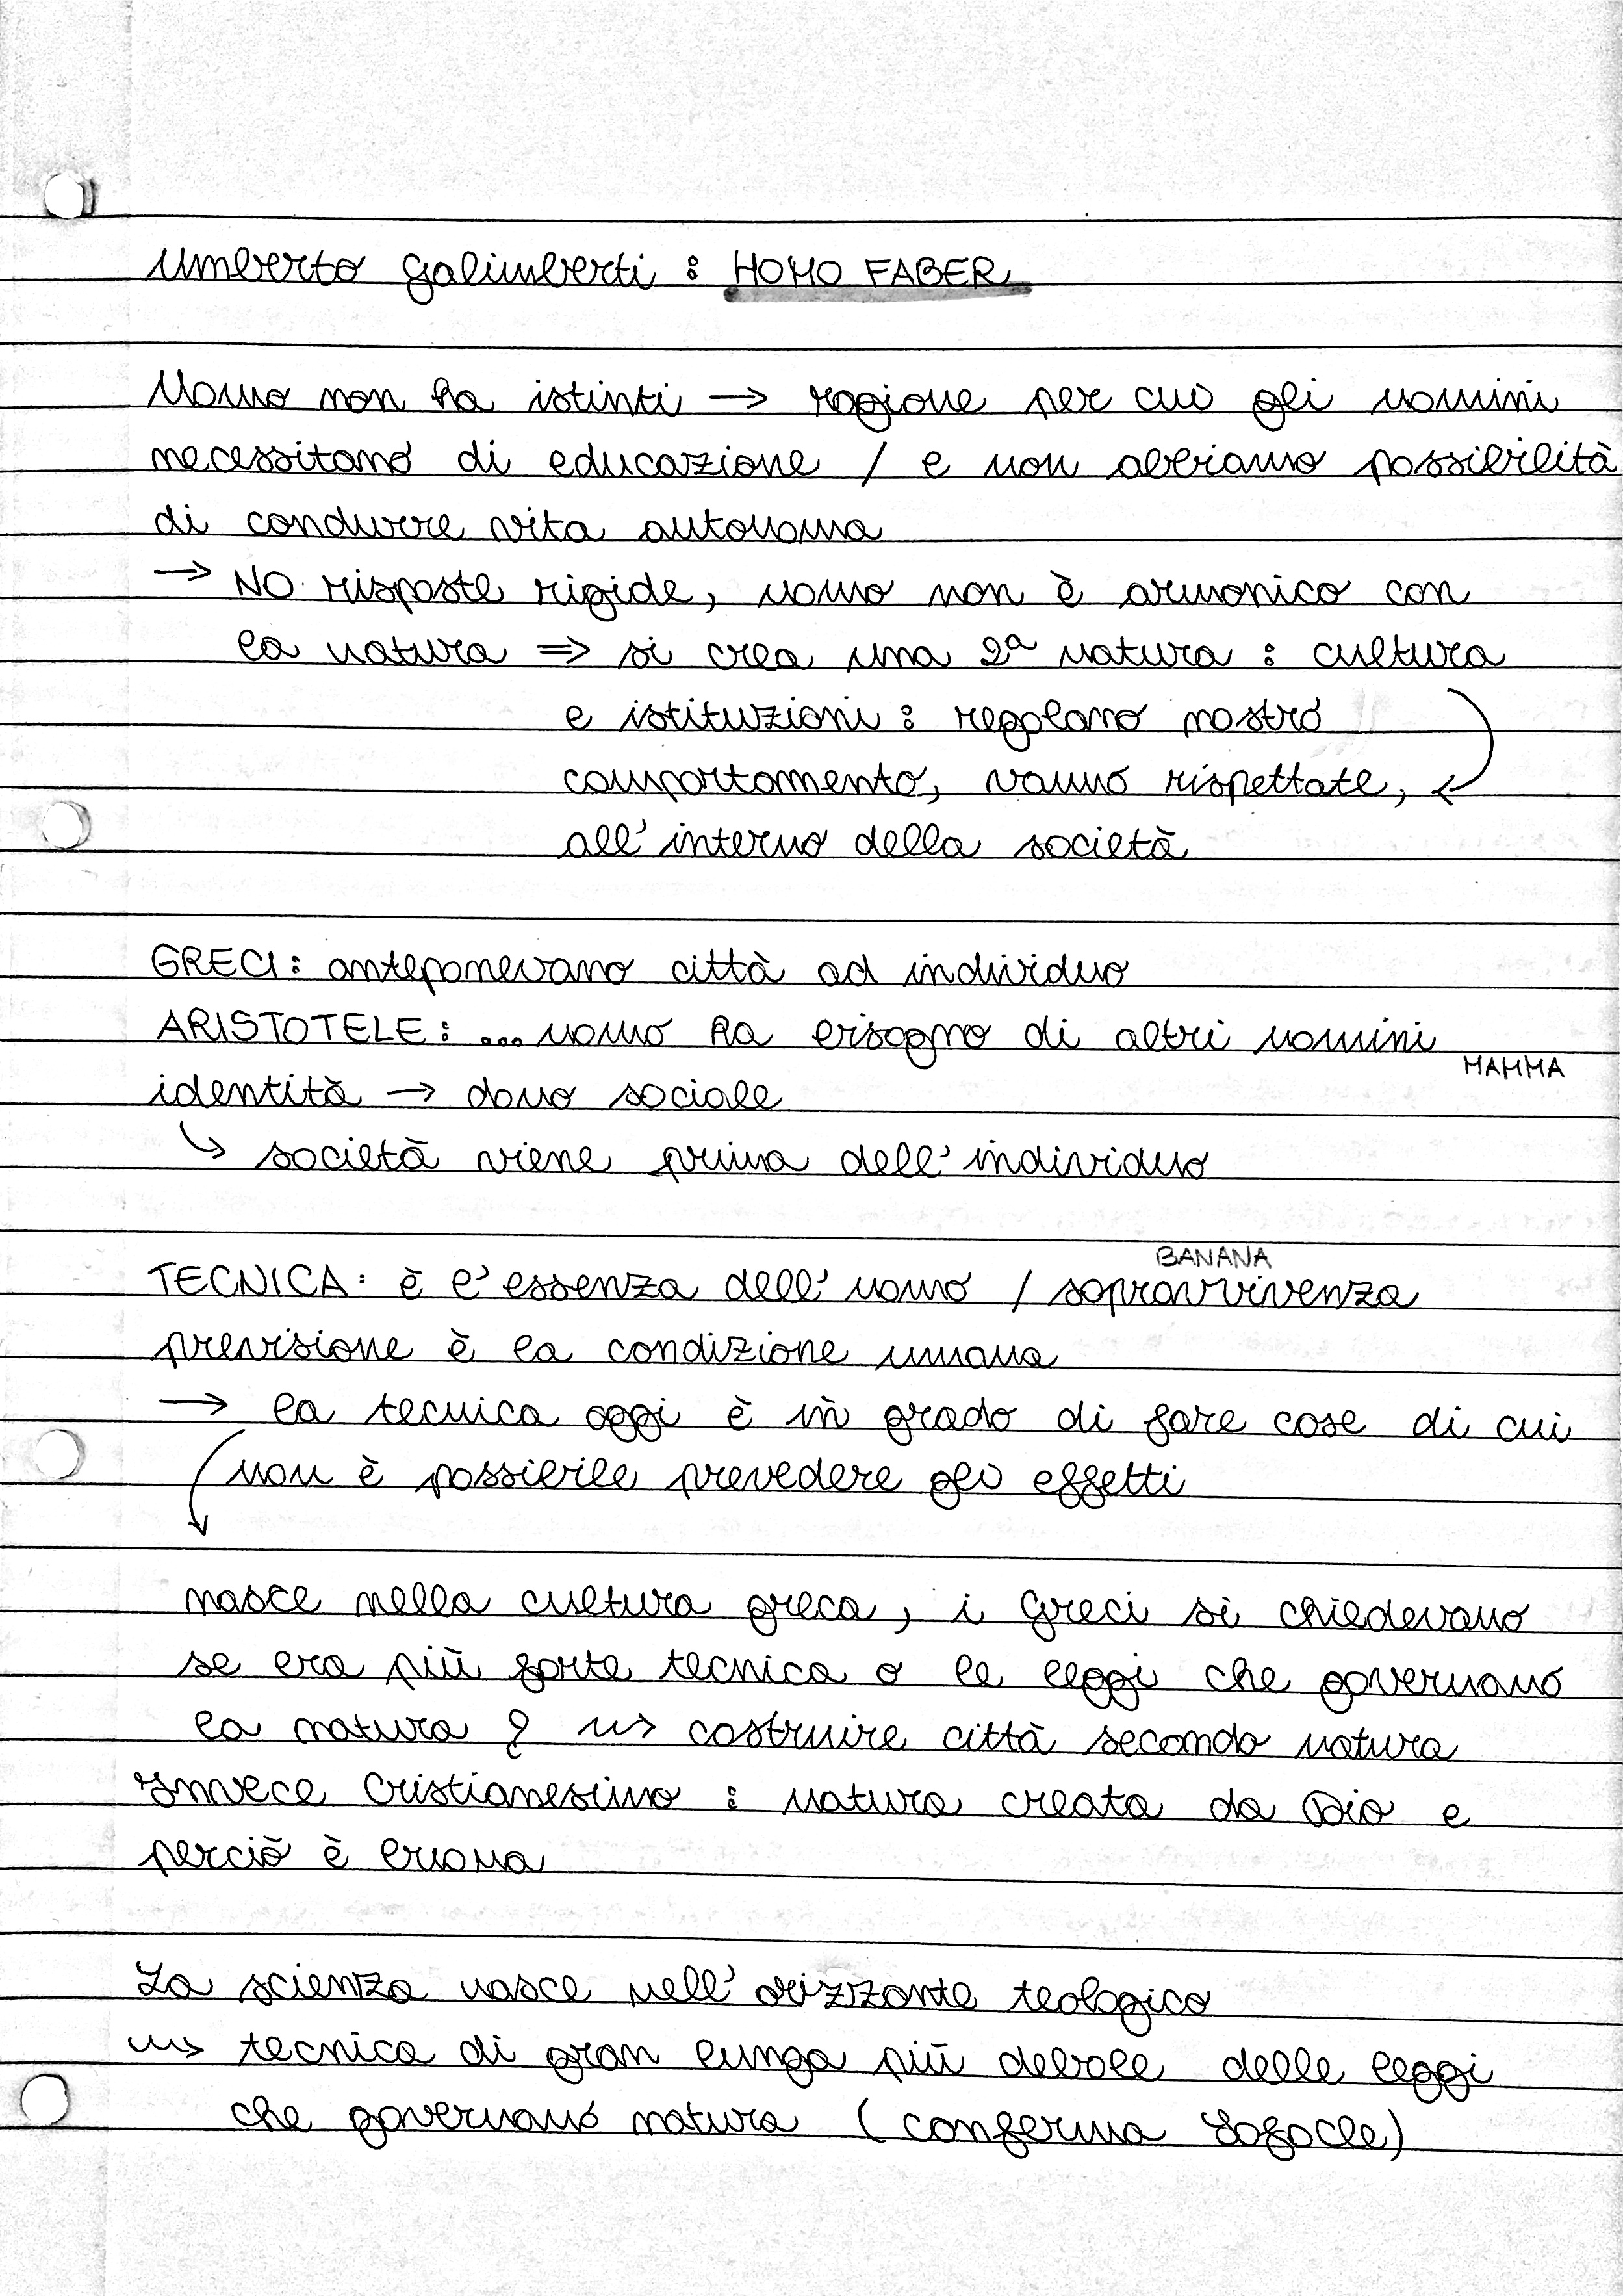 Umberto Galimberti : HOMO FABER
Uomo non ha istinti → ragione per cui gli uomini
necessitano di educazione / e non abbiamo possibilità
di condurre vita autonoma
→ NO risposte rigide, uomo non è armonico con
la natura ⇒ si crea una 2ª natura : cultura
e istituzioni : regolano nostro
comportamento, vanno rispettate,
all'interno della società
GRECI : anteponevano città ad individuo
ARISTOTELE : ... uomo ha bisogno di altri uomini
MAMMA
identità → dono sociale
↳ società viene prima dell'individuo
BANANA
TECNICA : è l'essenza dell'uomo / sopravvivenza
previsione è la condizione umana
→ la tecnica oggi è in grado di fare cose di cui
non è possibile prevedere gli effetti
nasce nella cultura greca, i Greci si chiedevano
se era più forte tecnica o le leggi che governano
la natura ? ⇝ costruire città secondo natura
Invece Cristianesimo : natura creata da Dio e
perciò è buona
La scienza nasce nell'orizzonte teologico
⇝ tecnica di gran lunga più debole delle leggi
che governano natura (conferma Sofocle)